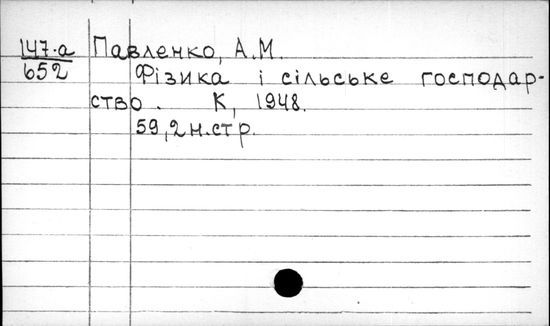 147-а Павленко, А.М.
652 Фізика і сільське господар-
ство. К, 1948.
59,2н.стр.